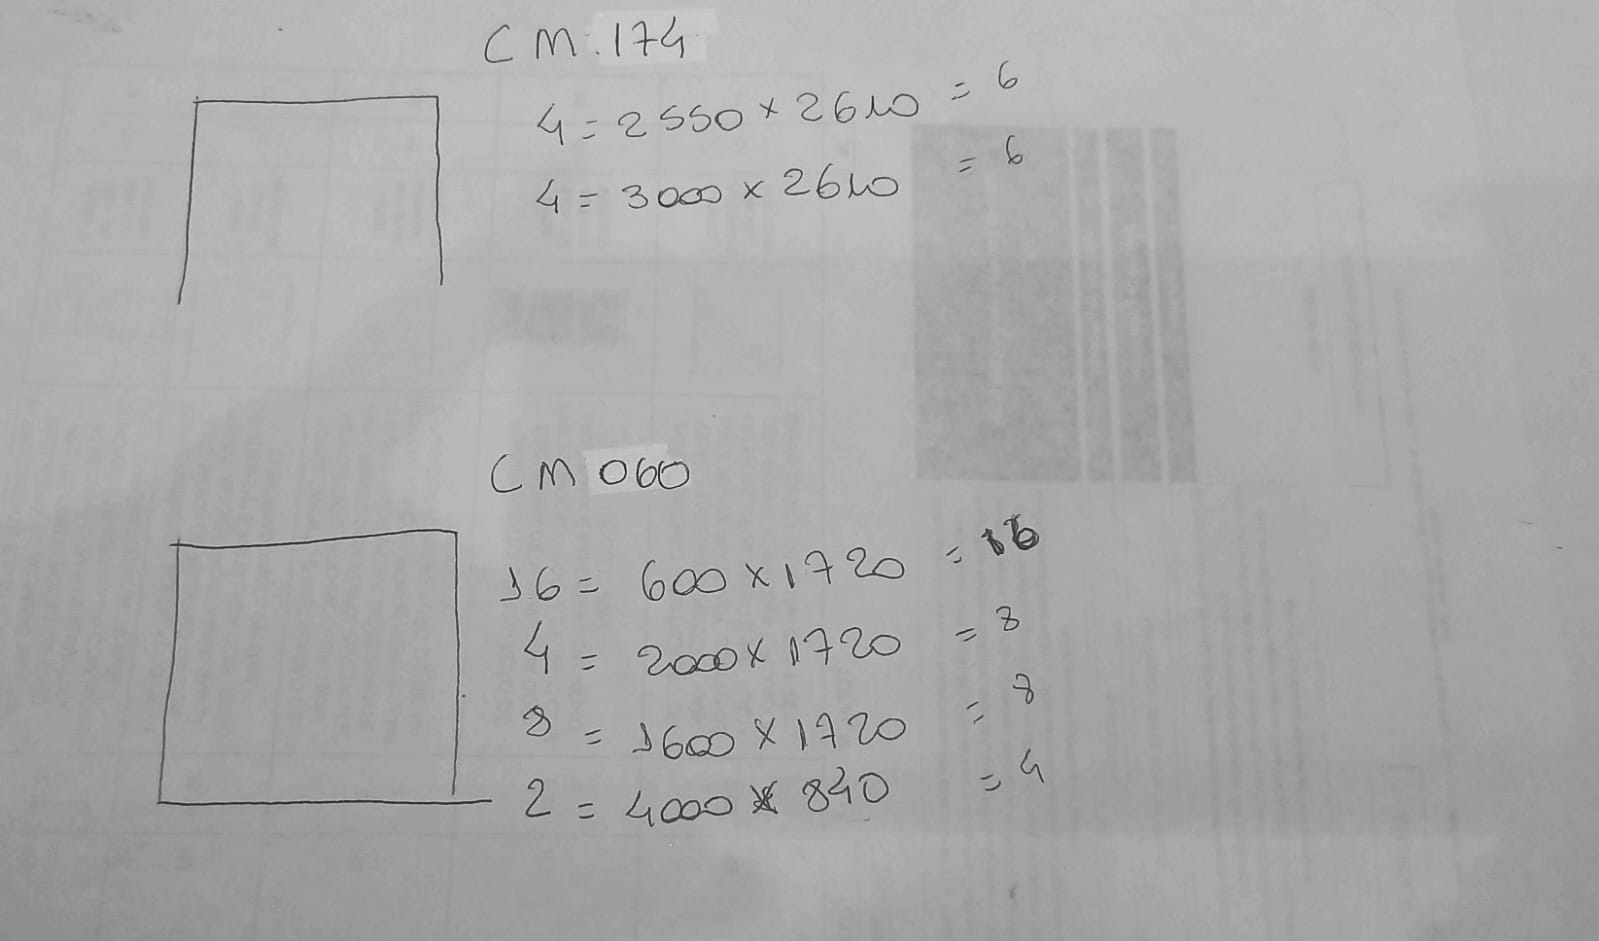 CM: 174
4 = 2550 x 2610 = 6
4 = 3000 x 2610 = 6
CM 060
16 = 600 x 1720 = 16
4 = 2000 x 1720 = 8
8 = 1600 x 1720 = 8
2 = 4000 x 840 = 4